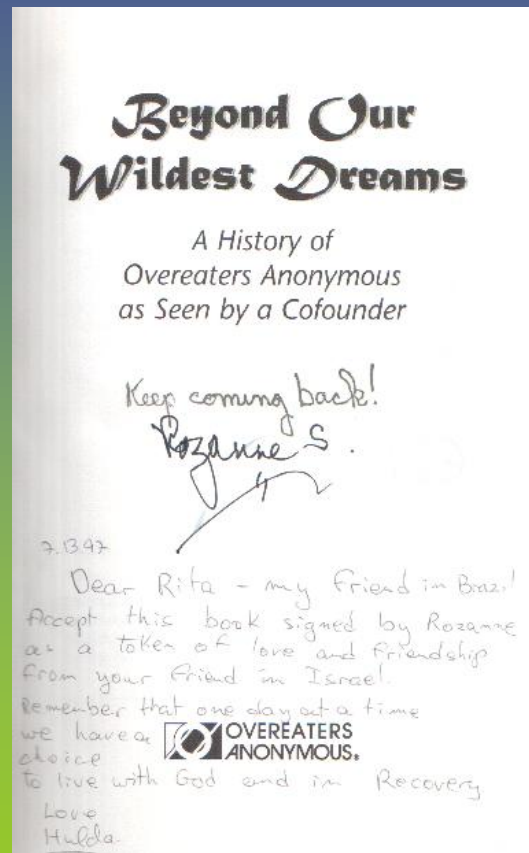 Beyond Our
Wildest Dreams
A History of
Overeaters Anonymous
as Seen by a Cofounder
Keep coming back!
Rozanne S.
7.13.97
Dear Rita – my friend in Brazil
Accept this book signed by Rozanne
as a token of love and friendship
from your friend in Israel.
Remember that one day at a time
we have a
choice
OVEREATERS
ANONYMOUS®
to live with God and in Recovery
Love
Hulda